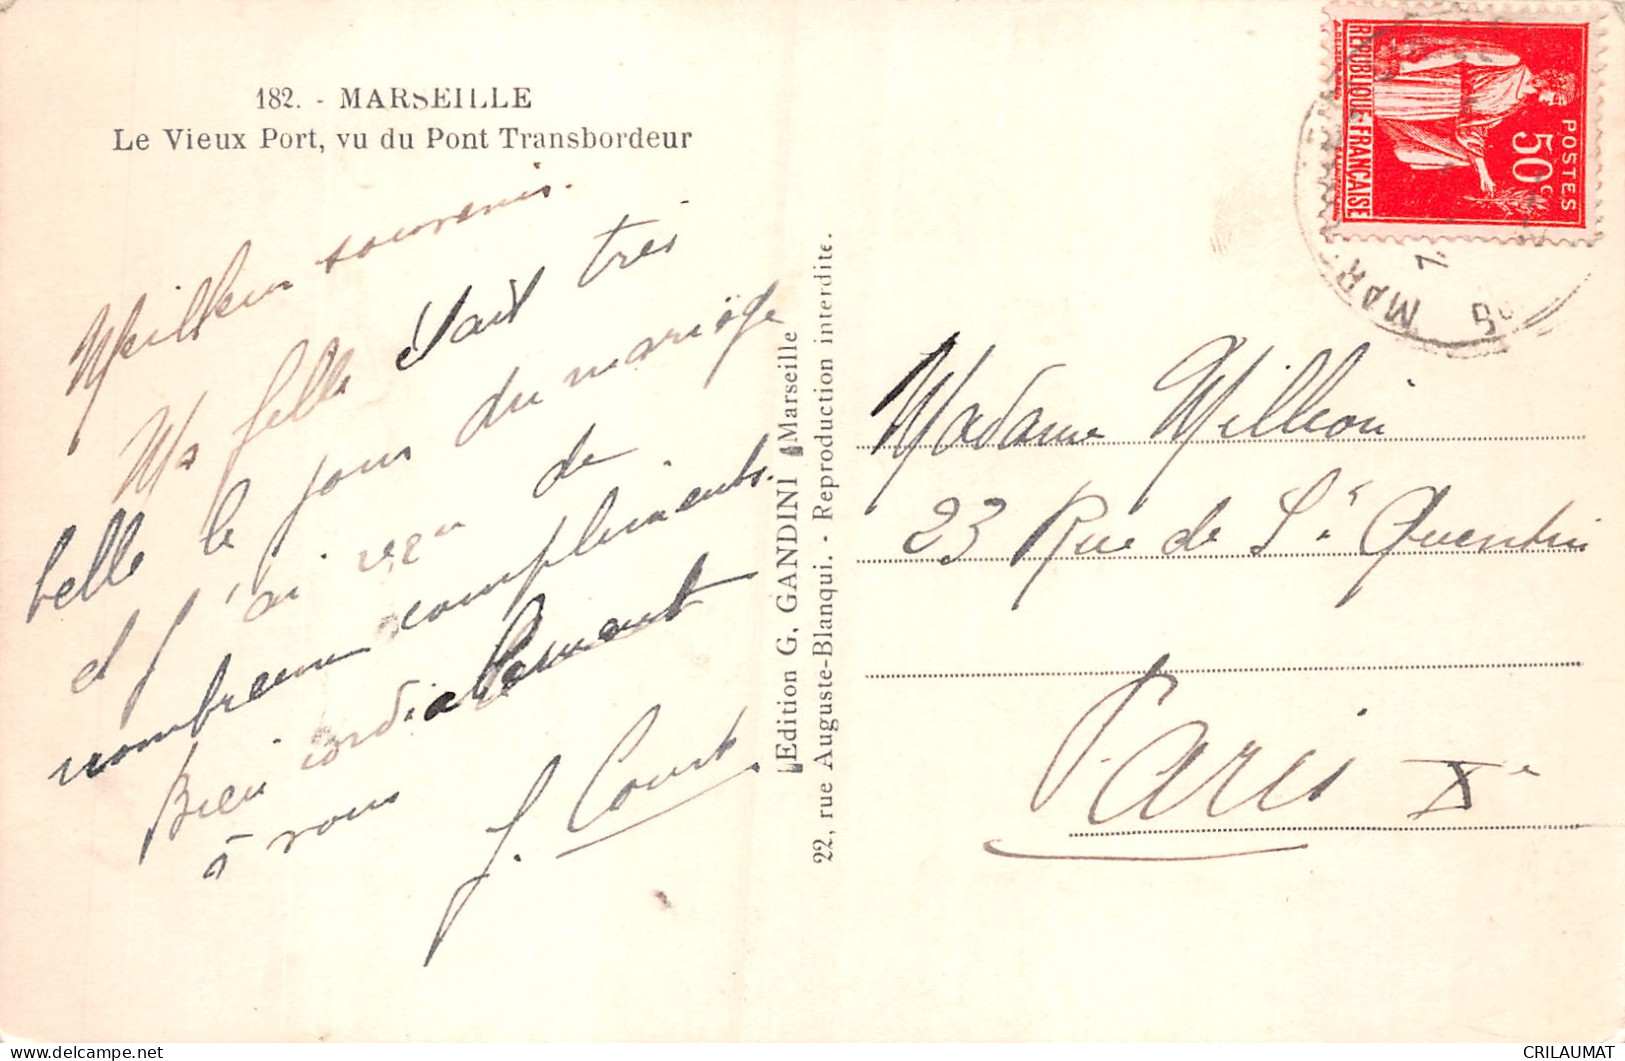 182. - MARSEILLE
Le Vieux Port, vu du Pont Transbordeur
Meilleur souvenir.
Ma fille était très
belle le jour du mariage
et j'ai reçu de
nombreux compliments.
Bien cordialement
à vous
J. Court
Edition G. GANDINI Marseille
22, rue Auguste-Blanqui. - Reproduction interdite.
REPUBLIQUE FRANÇAISE
POSTES
50c
MAR
Madame Million
23 Rue de St Quentin
Paris Xe
CRILAUMAT